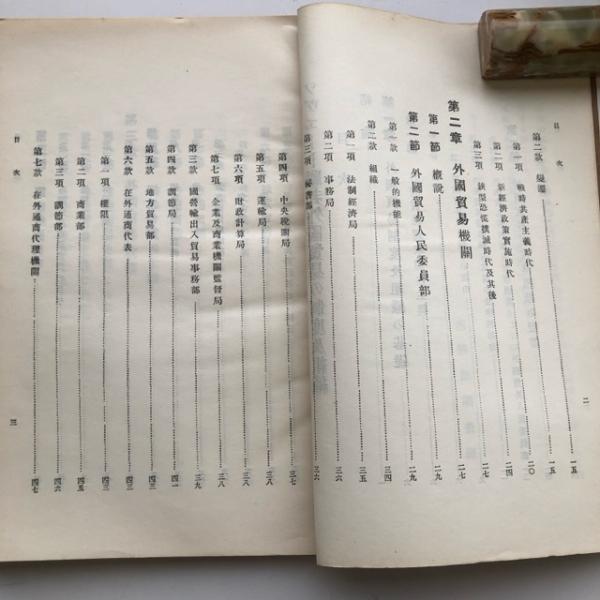 目次
二
第二款 變遷 一五
第一項 戰時共產主義時代 一五
第二項 新經濟政策實施時代 二〇
第三項 鋏型恐慌撲滅時代及其後 二四
第二章 外國貿易機關 二七
第一節 概說 二七
第二節 外國貿易人民委員部 二九
第一款 一般的機能 二九
第二款 組織 三四
第一項 法制經濟局 三五
第二項 事務局 三六
第三項 三六
第四項 中央稅關局 三七
第五項 運輸局 三八
第六項 財政計算局 三八
第七項 企業及商業機關監督局 三八
第三款 國營輸出入貿易事務部 三九
第四款 調節局 四一
第五款 地方貿易部 四三
第六款 在外通商代表 四三
第一項 權限 四四
第二項 商業部 四五
第三項 調節部 四六
第七款 在外通商代理機關 四七
目次
三